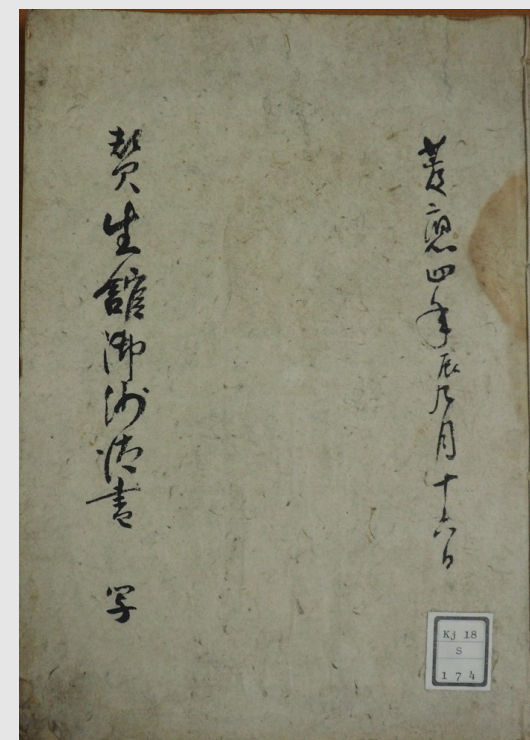 慶應四年辰九月十六日
賛生館御沙汰書 写
Kj 18
S
174